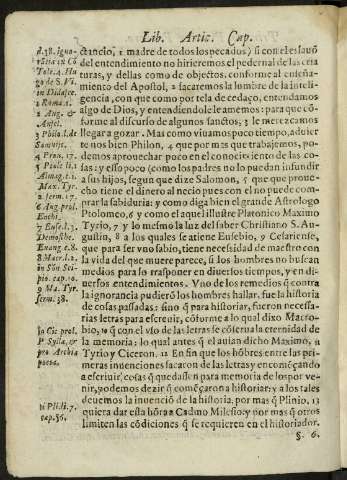 Lib. Artic. Cap.
ctancio, 1 madre de todos los pecados) si con el eslauõ
del entendimiento no hirieremos el pedernal de las cria
turas, y dellas como de objectos, conforme al enseña-
miento del Apostol, 2 sacaremos la lombre de la inteli-
gencia, con que como por tela de cedaço, entendamos
algo de Dios, y entendiendole le amemos: para que cõ-
forme al discurso de algunos sanctos, 3 le merezcamos
llegar a gozar. Mas como viuamos poco tiempo, aduier
te nos bien Philon, 4 que por mas que trabajemos, po-
demos aprouechar poco en el conocimiento de las co-
sas: y esso poco (como los padres no lo puedan infundir
a sus hijos, segun que dize Salomon, 5 que que proue-
cho tiene el dinero al necio pues con el no puede com-
prar la sabiduria: y como diga bien el grande Astrologo
Ptolomeo, 6 y como el aquel illustre Platonico Maximo
Tyrio, 7 y lo mesmo la luz del saber Christiano S. Au-
gustin, 8 a los quales se atiene Eusebio, 9 Cesariense,
que para ser vno sabio, tiene necesidad de maestro con
la vida del que muere parece, si los hombres no buscan
medios para lo trasponer en diuersos tiempos, y en di-
uersos entendimientos. Vno de los remedios q̃ contra
la ignorancia pudierõ los hombres hallar, fue la historia
de cosas passadas: sino q̃ para historiar, fueron necessa-
rias letras para escreuir, cõforme a lo qual dixo Macro-
bio, 10 q̃ con el vso de las letras se cõserua la eternidad de
la memoria: lo qual antes q̃ el auian dicho Maximo, 11
Tyrio y Ciceron. 12 En fin que los hõbres entre las pri-
meras inuenciones sacaron de las letras y encomẽçando
a escriuir, cosas q̃ quedassen para memoria de los por ve-
nir, y odemos dezir q̃ comẽçaron a historiar: y a los tales
deuemos la inuenciõ de la historia, por mas q̃ Plinio, 13
quiera dar esta hõra a Cadmo Milesio: y por mas q̃ otros
limiten las cõdiciones q̃ se requieren en el historiador.
§. 6.
d. 38. igno-
1 Roma. 1.
2 Aug. &
Ansel.
4 Prou. 17.
Max. Tyr.
2 serm. 17.
6 Aug. prol.
7 Euse. l. 3.
Euang. c. 6.
8 Macr. l. 2.
in Sõn Sci-
pio. cap. 10.
9 Ma. Tyr.
serm. 38.
10 Cic. prol.
P. Sylla, &
pro Archia
poeta.
11 Pli. li. 7.
cap. 56.